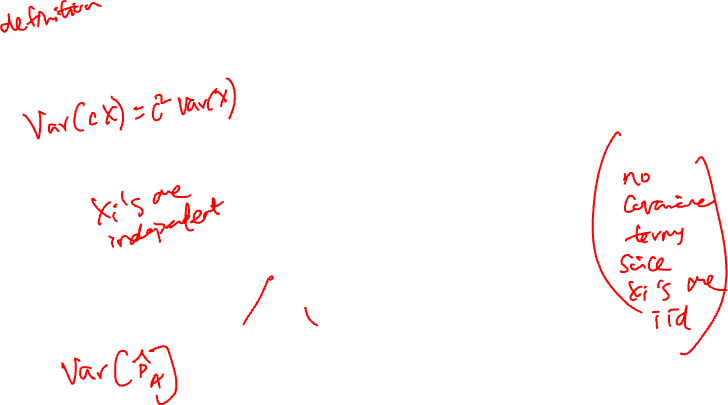 definition
Var(cX) = c² Var(X)
Xi's are
independent
no
Covariance
terms
since
Xi's are
iid
Var[p̂_A]